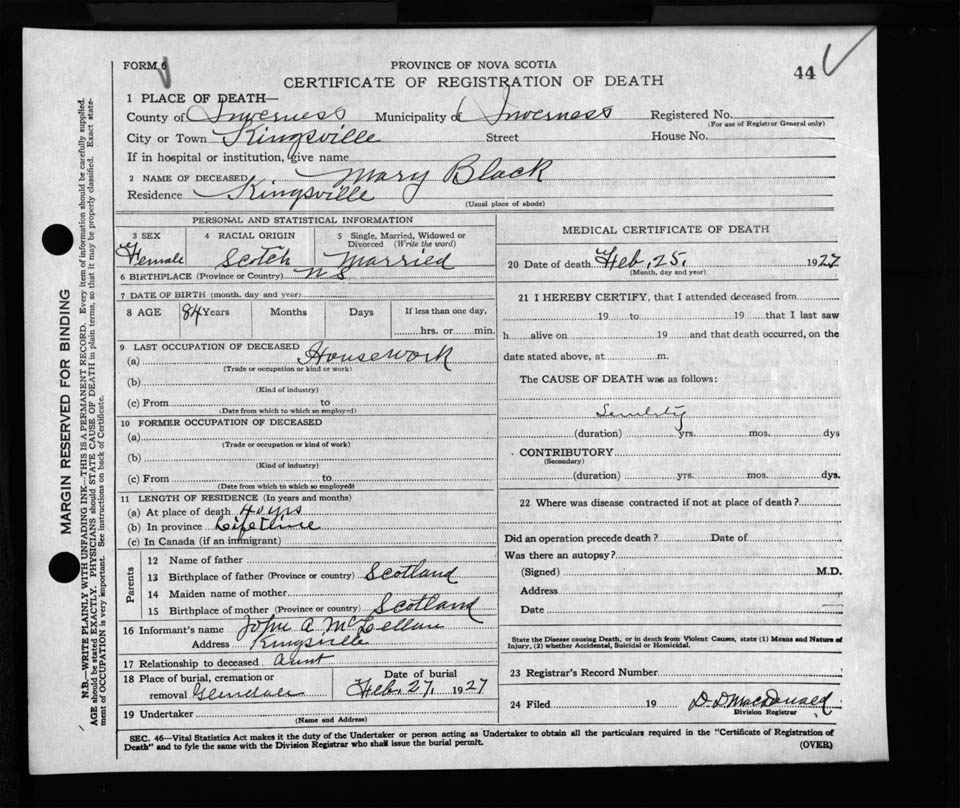 FORM 6
PROVINCE OF NOVA SCOTIA
44
CERTIFICATE OF REGISTRATION OF DEATH
1 PLACE OF DEATH—
County of Inverness Municipality of Inverness Registered No.
(For use of Registrar General only)
City or Town Kingsville Street House No.
If in hospital or institution, give name
2 NAME OF DECEASED Mary Black
Residence Kingsville
(Usual place of abode)
PERSONAL AND STATISTICAL INFORMATION
3 SEX 4 RACIAL ORIGIN 5 Single, Married, Widowed or
Divorced (Write the word)
Female Scotch Married
6 BIRTHPLACE (Province or Country) N S
7 DATE OF BIRTH (month, day and year)
8 AGE 84 Years Months Days If less than one day,
hrs. or min.
9 LAST OCCUPATION OF DECEASED
(a) Housework
(Trade or occupation or kind or work)
(b)
(Kind of industry)
(c) From to
(Date from which to which so employed)
10 FORMER OCCUPATION OF DECEASED
(a)
(Trade or occupation or kind of work)
(b)
(Kind of industry)
(c) From to
(Date from which to which so employed)
11 LENGTH OF RESIDENCE (In years and months)
(a) At place of death 40 yrs
(b) In province Lifetime
(c) In Canada (if an immigrant)
Parents
12 Name of father
13 Birthplace of father (Province or country) Scotland
14 Maiden name of mother
15 Birthplace of mother (Province or country) Scotland
16 Informant's name John A McLellan
Address Kingsville
17 Relationship to deceased Aunt
18 Place of burial, cremation or
removal Glendale
Date of burial
Feb. 27, 1927
19 Undertaker
(Name and Address)
MEDICAL CERTIFICATE OF DEATH
20 Date of death Feb. 25, 1927
(Month, day and year)
21 I HEREBY CERTIFY, that I attended deceased from
19 to 19 that I last saw
h alive on 19 and that death occurred, on the
date stated above, at m.
The CAUSE OF DEATH was as follows:
(duration) yrs. mos. dys
CONTRIBUTORY
(Secondary)
(duration) yrs. mos. dys.
22 Where was disease contracted if not at place of death?
Did an operation precede death? Date of
Was there an autopsy?
(Signed) M.D.
Address
Date
State the Disease causing Death, or in death from Violent Causes, state (1) Means and Nature of
Injury, (2) whether Accidental, Suicidal or Homicidal.
23 Registrar's Record Number
24 Filed 19 D. D MacDonald
Division Registrar
SEC. 46—Vital Statistics Act makes it the duty of the Undertaker or person acting as Undertaker to obtain all the particulars required in the "Certificate of Registration of
Death" and to fyle the same with the Division Registrar who shall issue the burial permit.
(OVER)
MARGIN RESERVED FOR BINDING
N.B.—WRITE PLAINLY WITH UNFADING INK—THIS IS A PERMANENT RECORD. Every item of information should be carefully supplied.
AGE should be stated EXACTLY. PHYSICIANS should STATE CAUSE OF DEATH in plain terms, so that it may be properly classified. Exact state-
ment of OCCUPATION is very important. See instructions on back of Certificate.